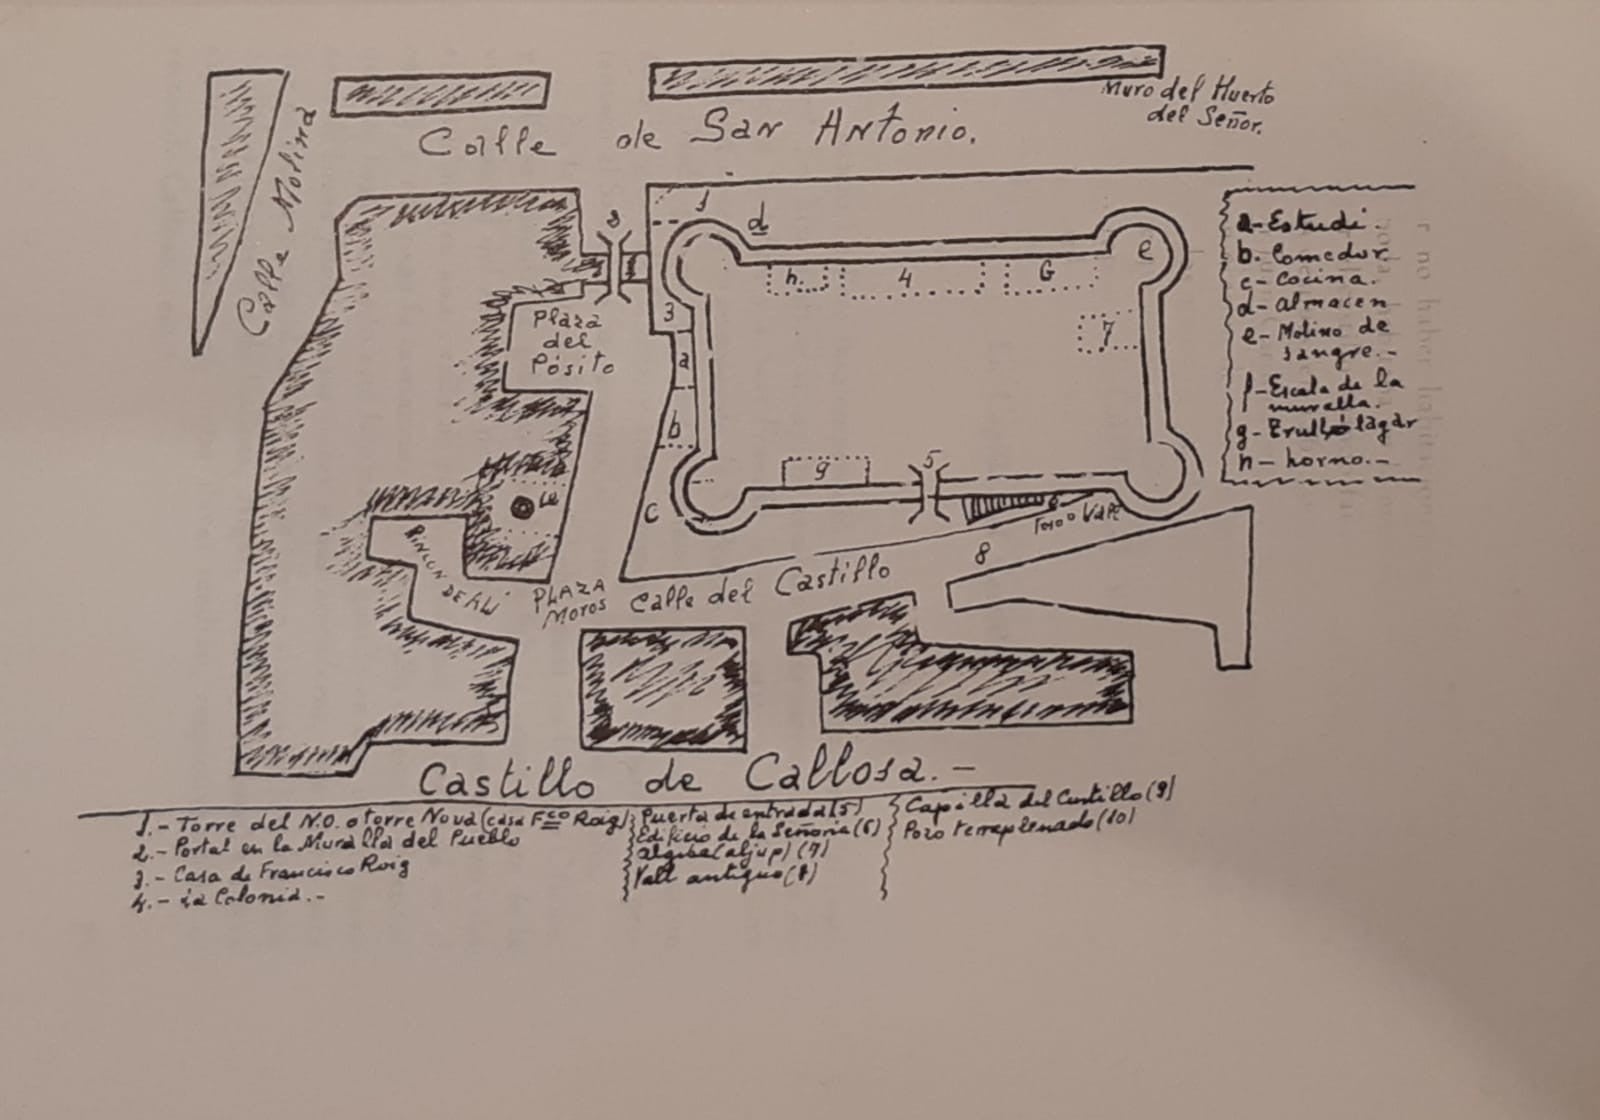 Muro del Huerto
del Señor.
Calle de San Antonio.
Calle Molina
1
d
2
e
h.
4
G
3
7
Plaza
del
Pósito
a
b
g
5
c
10
6
8
Rincon de Alí
PLAZA
Moros
Calle del Castillo
a-Estudi.
b. Comedor.
c- Cocina.
d- Almacen
e- Molino de
sangre.-
f-Escala de la
muralla.
g- Trull o lagar
h- horno.-
Castillo de Callosa.-
1.- Torre del N.O. o torre Nova (casa Fco Roig)
2.- Portal en la Muralla del Pueblo
3.- Casa de Francisco Roig
4.- La Colonia.-
Puerta de entrada (5)
Edificio de la Señoria (6)
algiba (aljup) (7)
Vall antiguo (8)
Capilla del Castillo (9)
Pozo terraplenado (10)